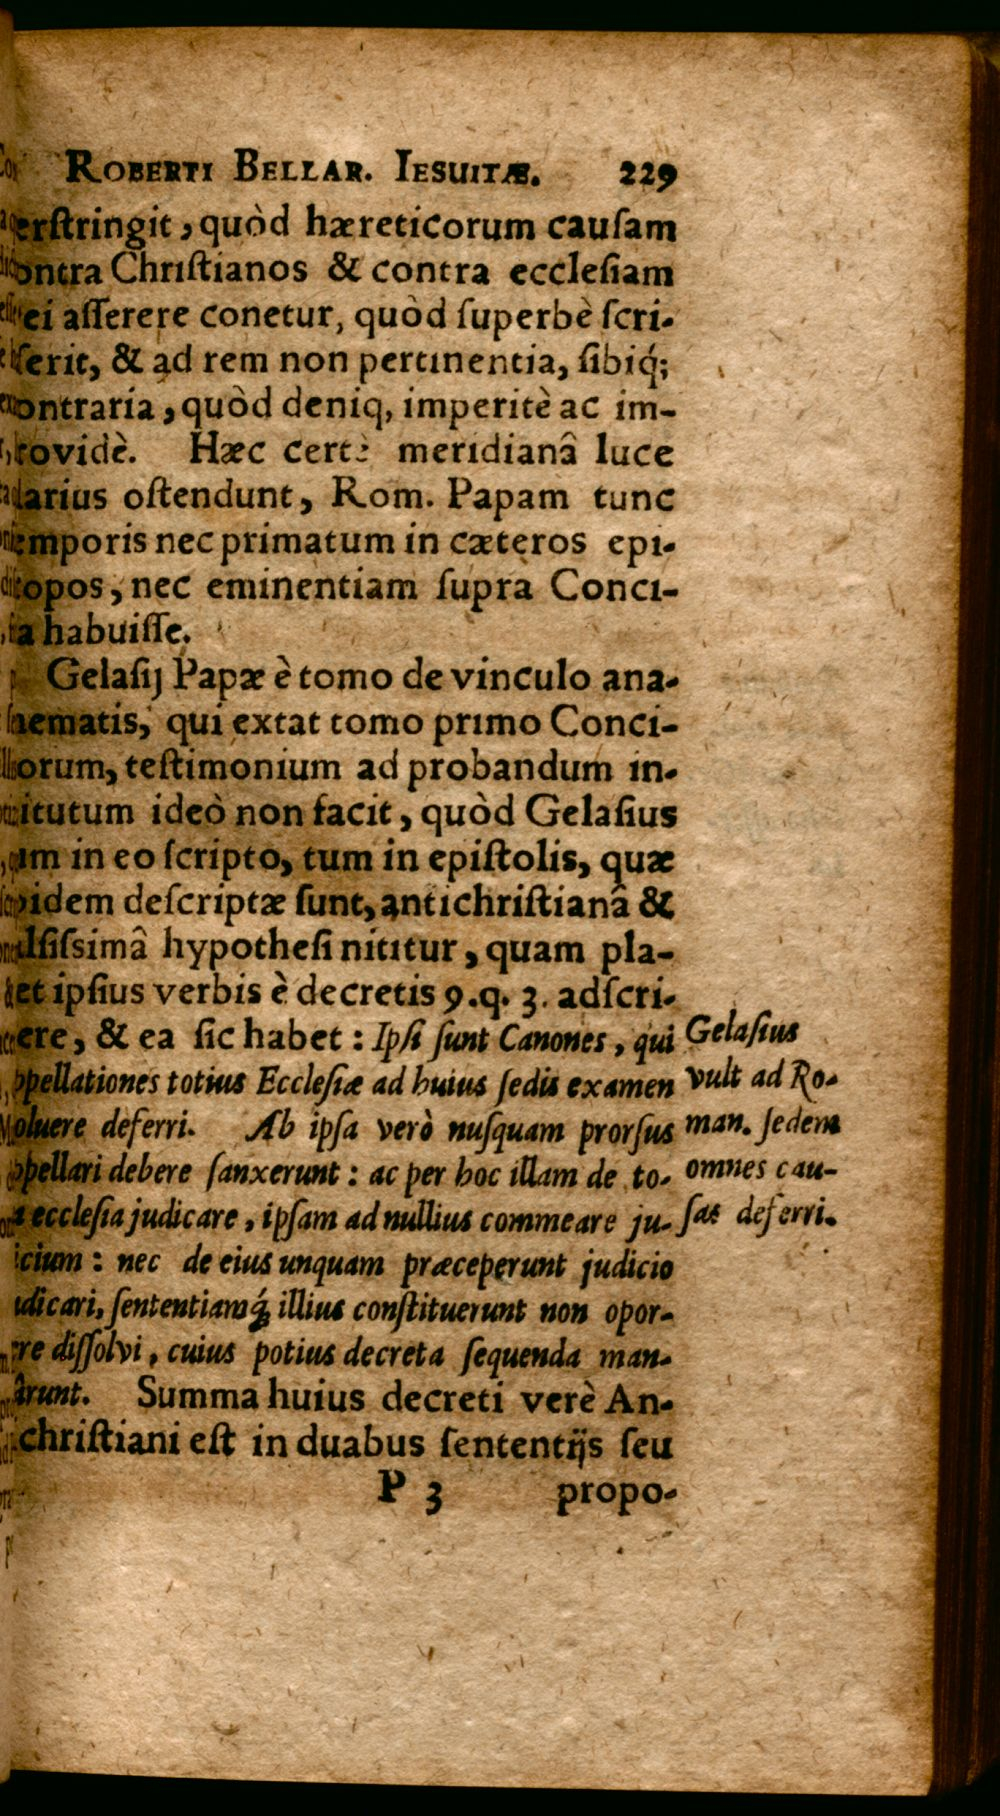 ROBERTI BELLAR. IESUITÆ. 229
erſtringit, quòd hæreticorum cauſam
ontra Chriſtianos & contra eccleſiam
ei aſſerere conetur, quòd ſuperbè ſcri-
ſerit, & ad rem non pertinentia, ſibiq́;
ontraria, quòd deniq, imperitè ac im-
rovidè. Hæc certè meridianâ luce
larius oſtendunt, Rom. Papam tunc
emporis nec primatum in cæteros epi-
copos, nec eminentiam ſupra Conci-
a habuiſſe.
Gelaſij Papæ è tomo de vinculo ana-
hematis, qui extat tomo primo Conci-
orum, teſtimonium ad probandum in-
itutum ideò non facit, quòd Gelaſius
um in eo ſcripto, tum in epiſtolis, quæ
bidem deſcriptæ ſunt, antichriſtianâ &
alſiſsimâ hypotheſi nititur, quam pla-
et ipſius verbis è decretis 9. q. 3. adſcri-
ere, & ea ſic habet: Ipſi ſunt Canones, qui
ppellationes totius Eccleſiæ ad huius ſedis examen
oluere deferri. Ab ipſa verò nuſquam prorſus
ppellari debere ſanxerunt: ac per hoc illam de to-
a eccleſia judicare, ipſam ad nullius commeare ju-
icium: nec de eius unquam præceperunt judicio
udicari, ſententiamq́; illius conſtituerunt non opor-
re diſſolvi, cuius potius decreta ſequenda man-
arunt. Summa huius decreti verè An-
ichriſtiani eſt in duabus ſententijs ſeu
P 3 propo-
Gelaſius
vult ad Ro-
man. ſedem
omnes cau-
ſas deferri.